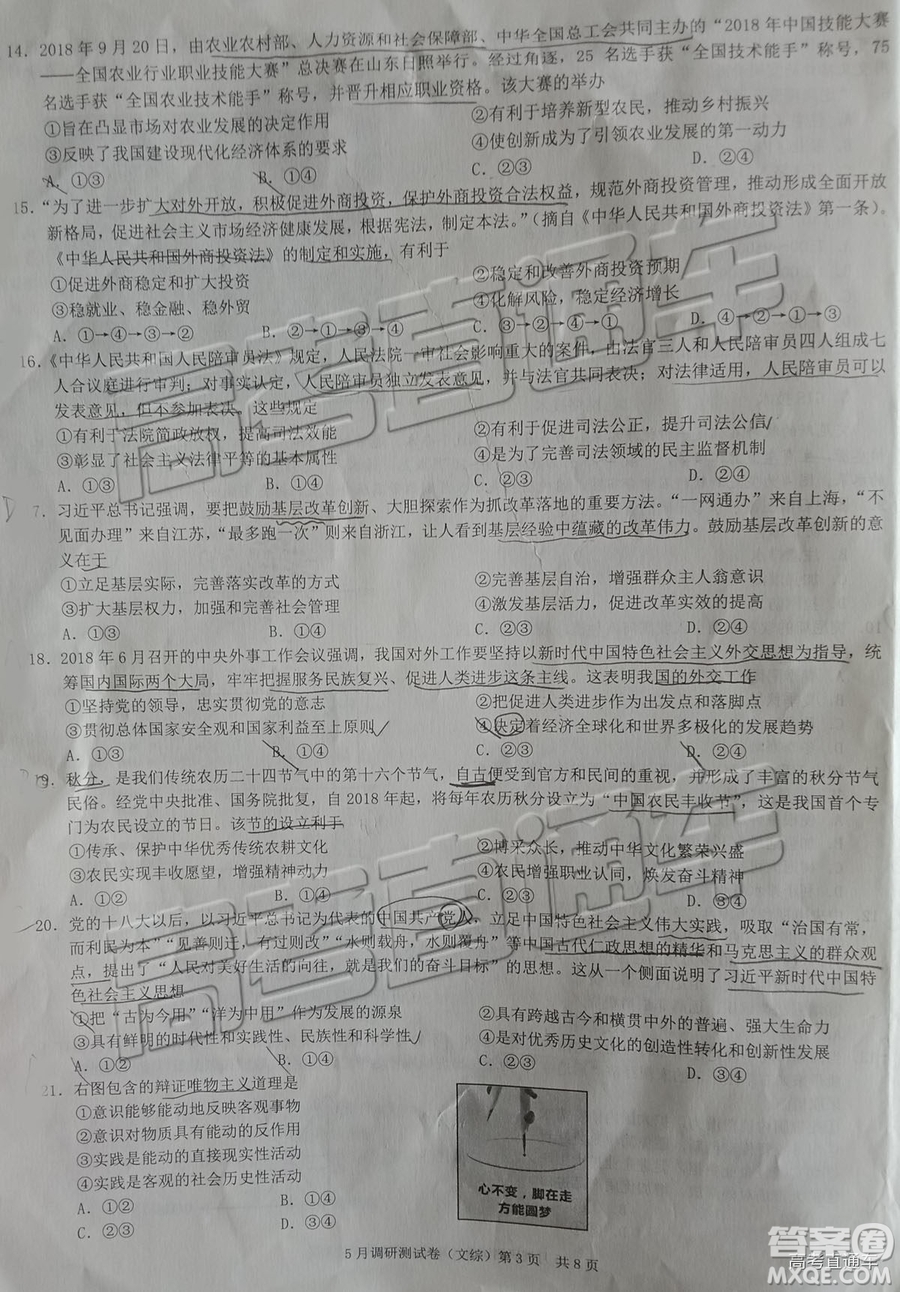 14．2018 年 9 月 20 日，由农业农村部、人力资源和社会保障部、中华全国总工会共同主办的“2018 年中国技能大赛
——全国农业行业职业技能大赛”总决赛在山东日照举行。经过角逐，25 名选手获“全国技术能手”称号，75
名选手获“全国农业技术能手”称号，并晋升相应职业资格。该大赛的举办
①旨在凸显市场对农业发展的决定作用 ②有利于培养新型农民，推动乡村振兴
③反映了我国建设现代化经济体系的要求 ④使创新成为了引领农业发展的第一动力
A．①③ B．①④ C．②③ D．②④
15．“为了进一步扩大对外开放，积极促进外商投资，保护外商投资合法权益，规范外商投资管理，推动形成全面开放
新格局，促进社会主义市场经济健康发展，根据宪法，制定本法。”（摘自《中华人民共和国外商投资法》第一条）。
《中华人民共和国外商投资法》的制定和实施，有利于
①促进外商稳定和扩大投资 ②稳定和改善外商投资预期
③稳就业、稳金融、稳外贸 ④化解风险，稳定经济增长
A．①→④→③→② B．②→①→③→④ C．③→②→④→① D．④→②→①→③
16．《中华人民共和国人民陪审员法》规定，人民法院一审社会影响重大的案件，由法官三人和人民陪审员四人组成七
人合议庭进行审判；对事实认定，人民陪审员独立发表意见，并与法官共同表决；对法律适用，人民陪审员可以
发表意见，但不参加表决。这些规定
①有利于法院简政放权，提高司法效能 ②有利于促进司法公正，提升司法公信
③彰显了社会主义法律平等的基本属性 ④是为了完善司法领域的民主监督机制
A．①③ B．①④ C．②③ D．②④
7．习近平总书记强调，要把鼓励基层改革创新、大胆探索作为抓改革落地的重要方法。“一网通办”来自上海，“不
见面办理”来自江苏，“最多跑一次”则来自浙江，让人看到基层经验中蕴藏的改革伟力。鼓励基层改革创新的意
义在于
①立足基层实际，完善落实改革的方式 ②完善基层自治，增强群众主人翁意识
③扩大基层权力，加强和完善社会管理 ④激发基层活力，促进改革实效的提高
A．①③ B．①④ C．②③ D．②④
18．2018 年 6 月召开的中央外事工作会议强调，我国对外工作要坚持以新时代中国特色社会主义外交思想为指导，统
筹国内国际两个大局，牢牢把握服务民族复兴、促进人类进步这条主线。这表明我国的外交工作
①坚持党的领导，忠实贯彻党的意志 ②把促进人类进步作为出发点和落脚点
③贯彻总体国家安全观和国家利益至上原则 ④决定着经济全球化和世界多极化的发展趋势
A．①③ B．①④ C．②③ D．②④
19．秋分，是我们传统农历二十四节气中的第十六个节气，自古便受到官方和民间的重视，并形成了丰富的秋分节气
民俗。经党中央批准、国务院批复，自 2018 年起，将每年农历秋分设立为“中国农民丰收节”，这是我国首个专
门为农民设立的节日。该节的设立利于
①传承、保护中华优秀传统农耕文化 ②博采众长，推动中华文化繁荣兴盛
③农民实现丰收愿望，增强精神动力 ④农民增强职业认同，焕发奋斗精神
A．①② B．①④ C．②③ D．③④
20．党的十八大以后，以习近平总书记为代表的中国共产党人，立足中国特色社会主义伟大实践，吸取“治国有常，
而利民为本”“见善则迁，有过则改”“水则载舟，水则覆舟”等中国古代仁政思想的精华和马克思主义的群众观
点，提出了“人民对美好生活的向往，就是我们的奋斗目标”的思想。这从一个侧面说明了习近平新时代中国特
色社会主义思想
①把“古为今用”“洋为中用”作为发展的源泉 ②具有跨越古今和横贯中外的普遍、强大生命力
③具有鲜明的时代性和实践性、民族性和科学性 ④实现对优秀历史文化的创造性转化和创新性发展
A．①② B．①④ C．②③ D．③④
21．右图包含的辩证唯物主义道理是
①意识能够能动地反映客观事物
②意识对物质具有能动的反作用
③实践是能动的直接现实性活动
④实践是客观的社会历史性活动
A．①② B．①④
C．②③ D．③④
心不变，脚在走
方能圆梦
5 月调研测试卷（文综）第 3 页 共 8 页
高考直通车
高考直通车
答案圈
高考直通车
MXQE.COM